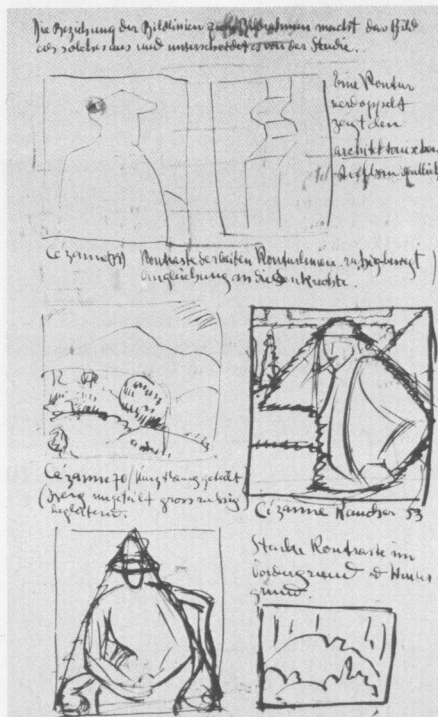 Die Beziehung der Bildlinien zum Bildrahmen macht das Bild
als solches aus und unterscheidet es von der Studie...
Eine Kontur
verdoppelt
zeigt den
architektonischen
Aufbau deutlich
Cézanne Kontraste der beiden Konturlinien ruhig bewegt
Angleichung an die Senkrechte.
Cézanne 70/
(Berg ungeteilt gross ruhig
begleitend.
Cézanne Raucher 53
Starke Kontraste im
Vordergrund & Hinter
grund.